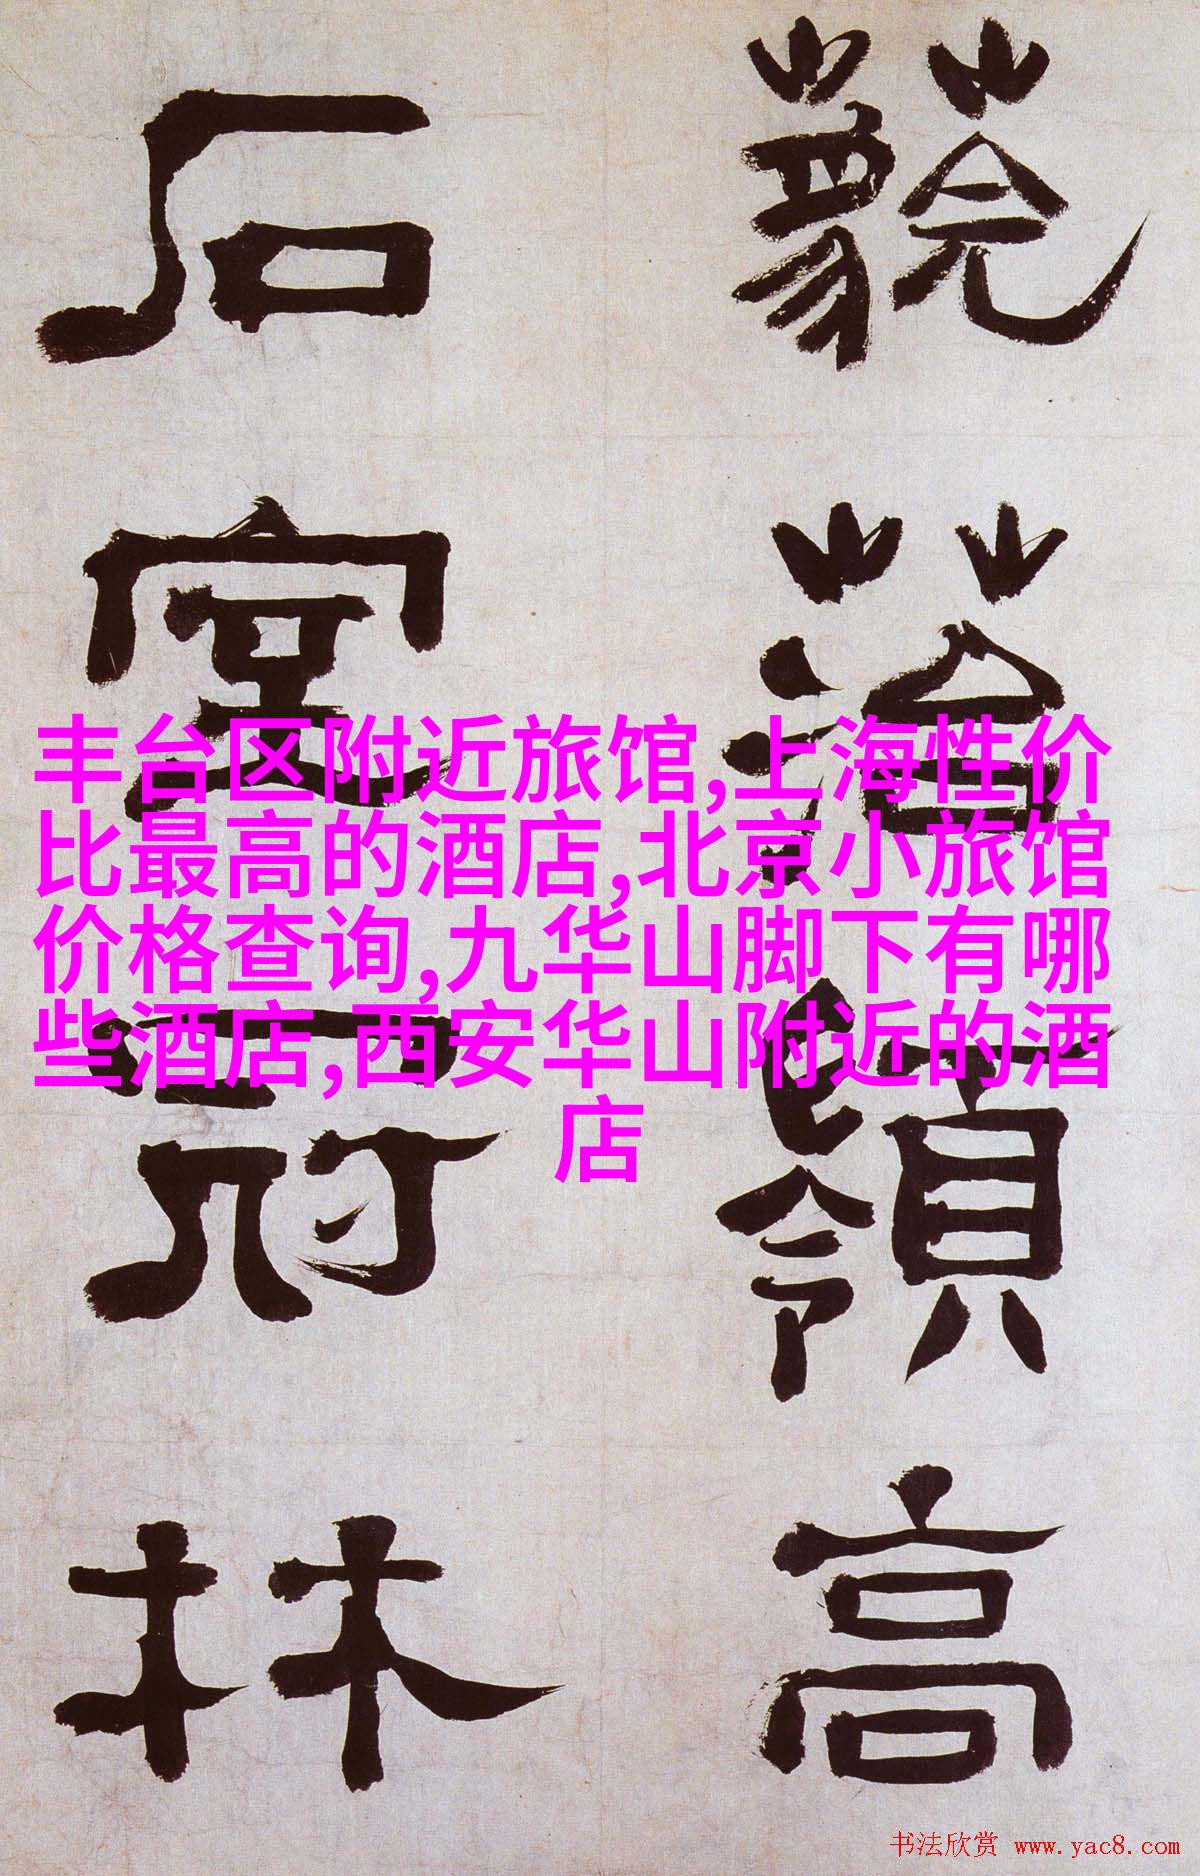 嶺高
石室林
丰台区附近旅馆,上海性价
比最高的酒店,北京小旅馆
价格查询,九华山脚下有哪
些酒店,西安华山附近的酒
店
书法欣赏 www.yac8.com